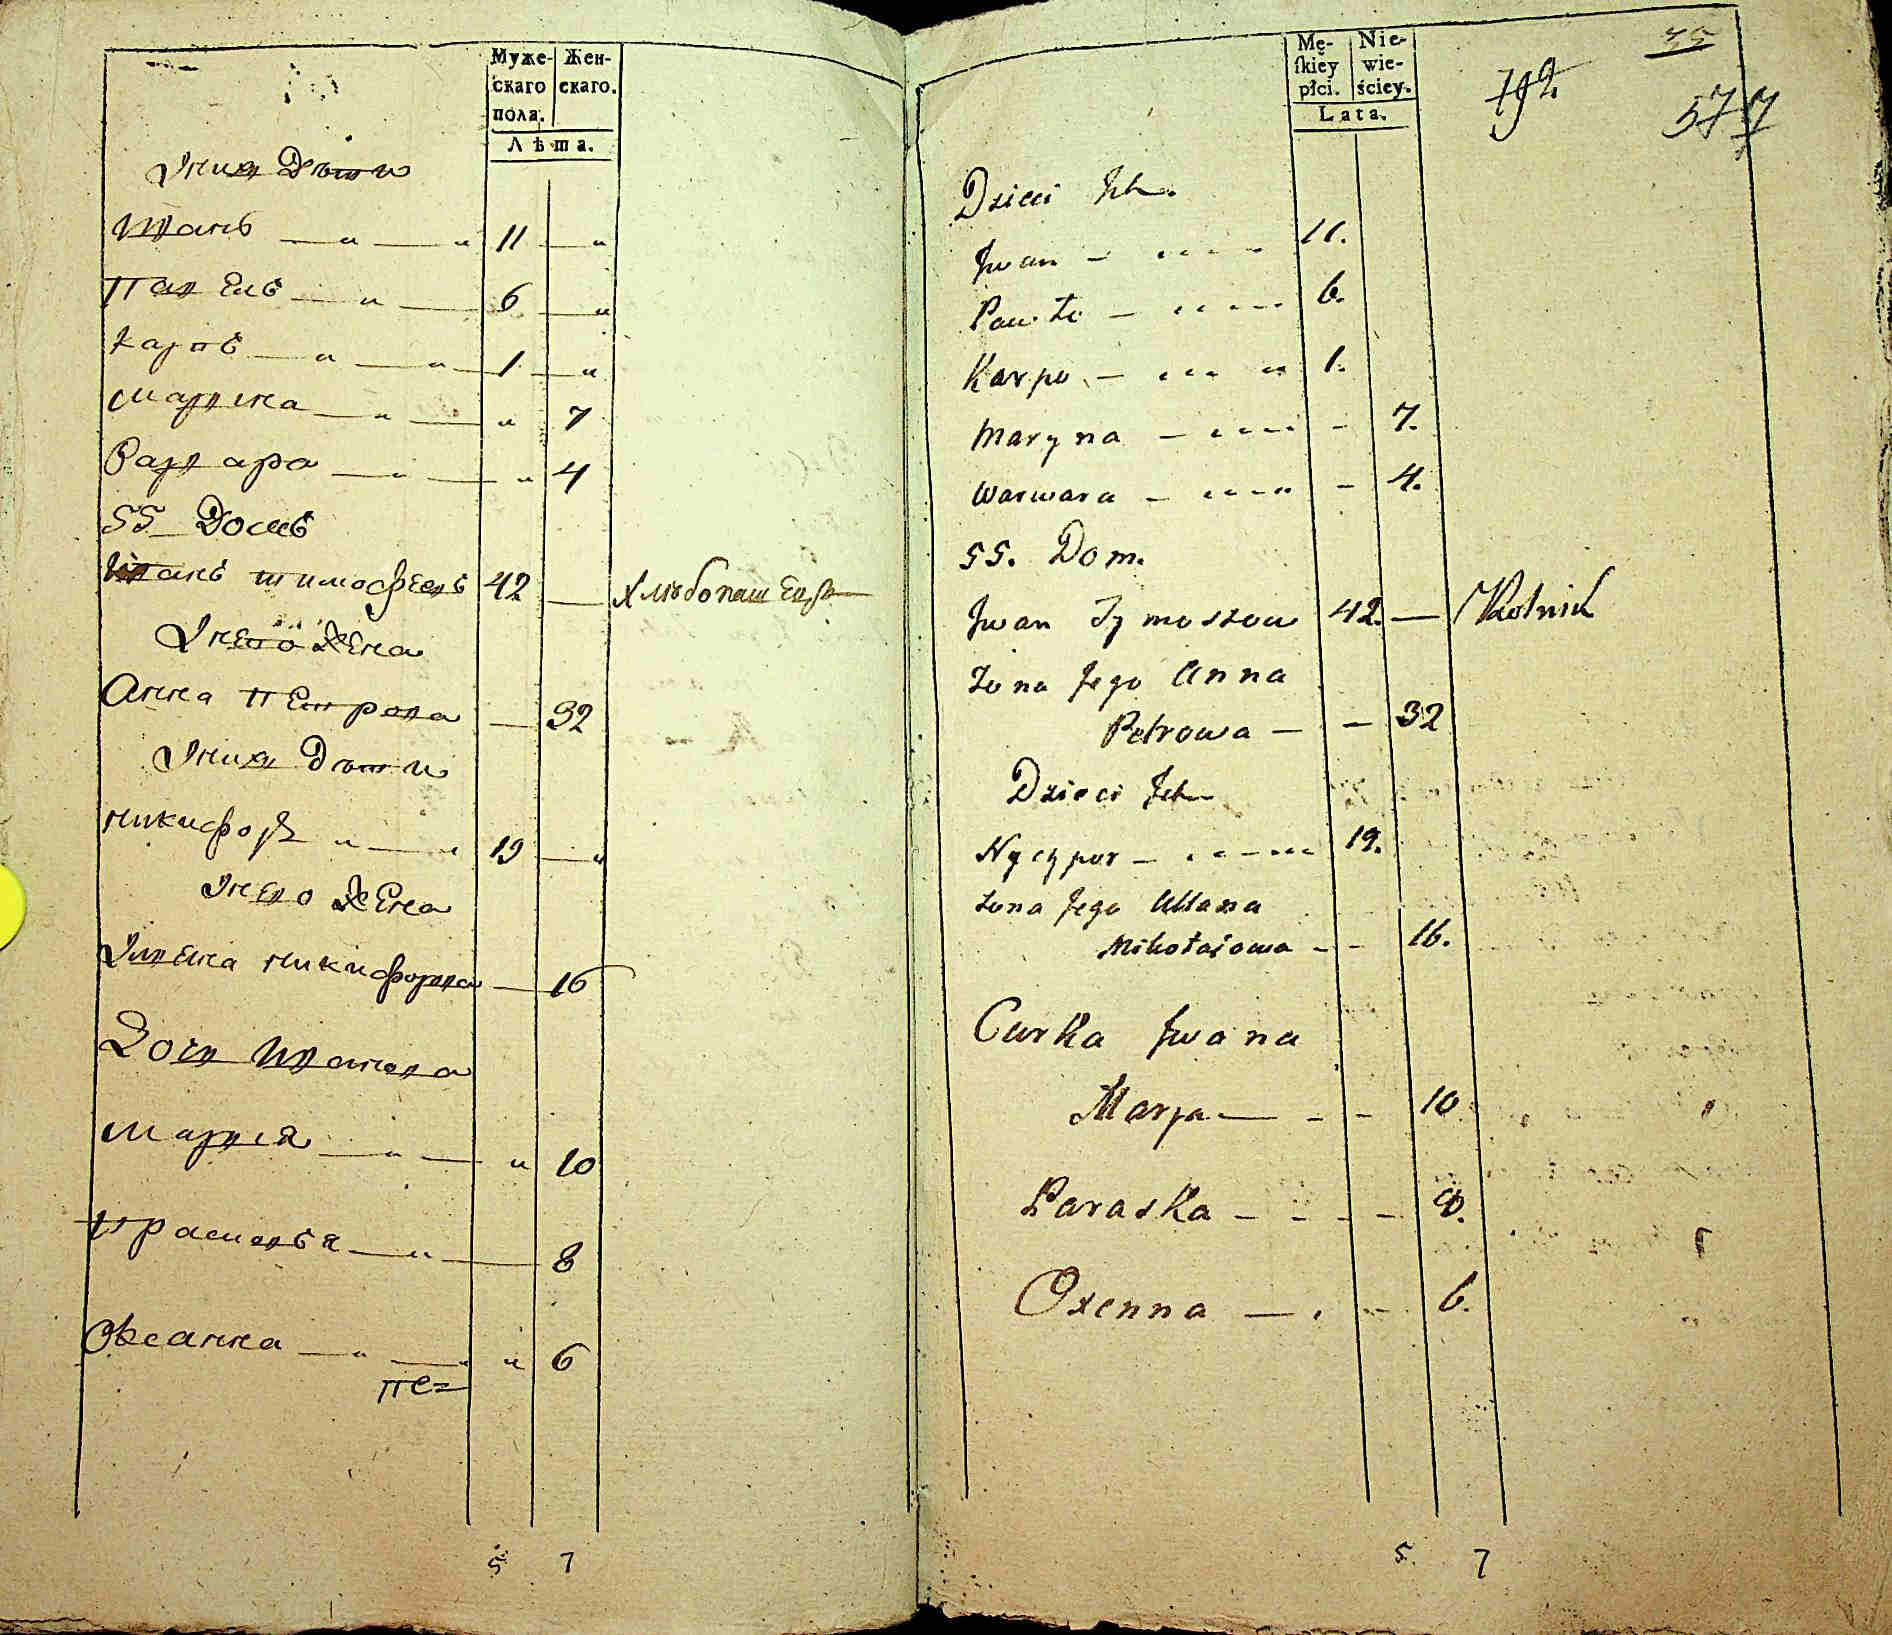 Муже-
скаго
пола.
Жен-
скаго.
Лѣта.
Уних Дѣти
Иванъ — " — " 11 — "
Павелъ — " — 6 — "
Карпъ — " — " 1 — "
Марина — " — " 7
Варвара — " — " 4
55 Домъ
Иванъ Тимофеевъ 42 — Хлѣбопашецъ
Унево Жена
Анна Петрова — 32
Уних Дѣти
Никифоръ " — " 19 — "
Унево Жена
Никифорова — 16
Дочь Иванова
Мария — " — " 10
Прасковья — " — 8
Оксанна — " — " 6
Пе=
5 7
Mę-
skiey
płci.
Nie-
wie-
ściey.
Lata.
192
35
577
Dzieci Ich
Jwan — 11.
Pawło — 6.
Karpo — 1.
Maryna — 7.
Warwara — 4.
55. Dom.
Jwan Tymoszow 42. — Rolnik
Żona Jego Anna
Petrowa — 32
Dzieci Ich
Nyczypor — 19.
Żona Jego
Mikołajowa — 16.
Curka Jwana
Marya — 10
Paraska — 8.
Oxenna — 6.
5. 7